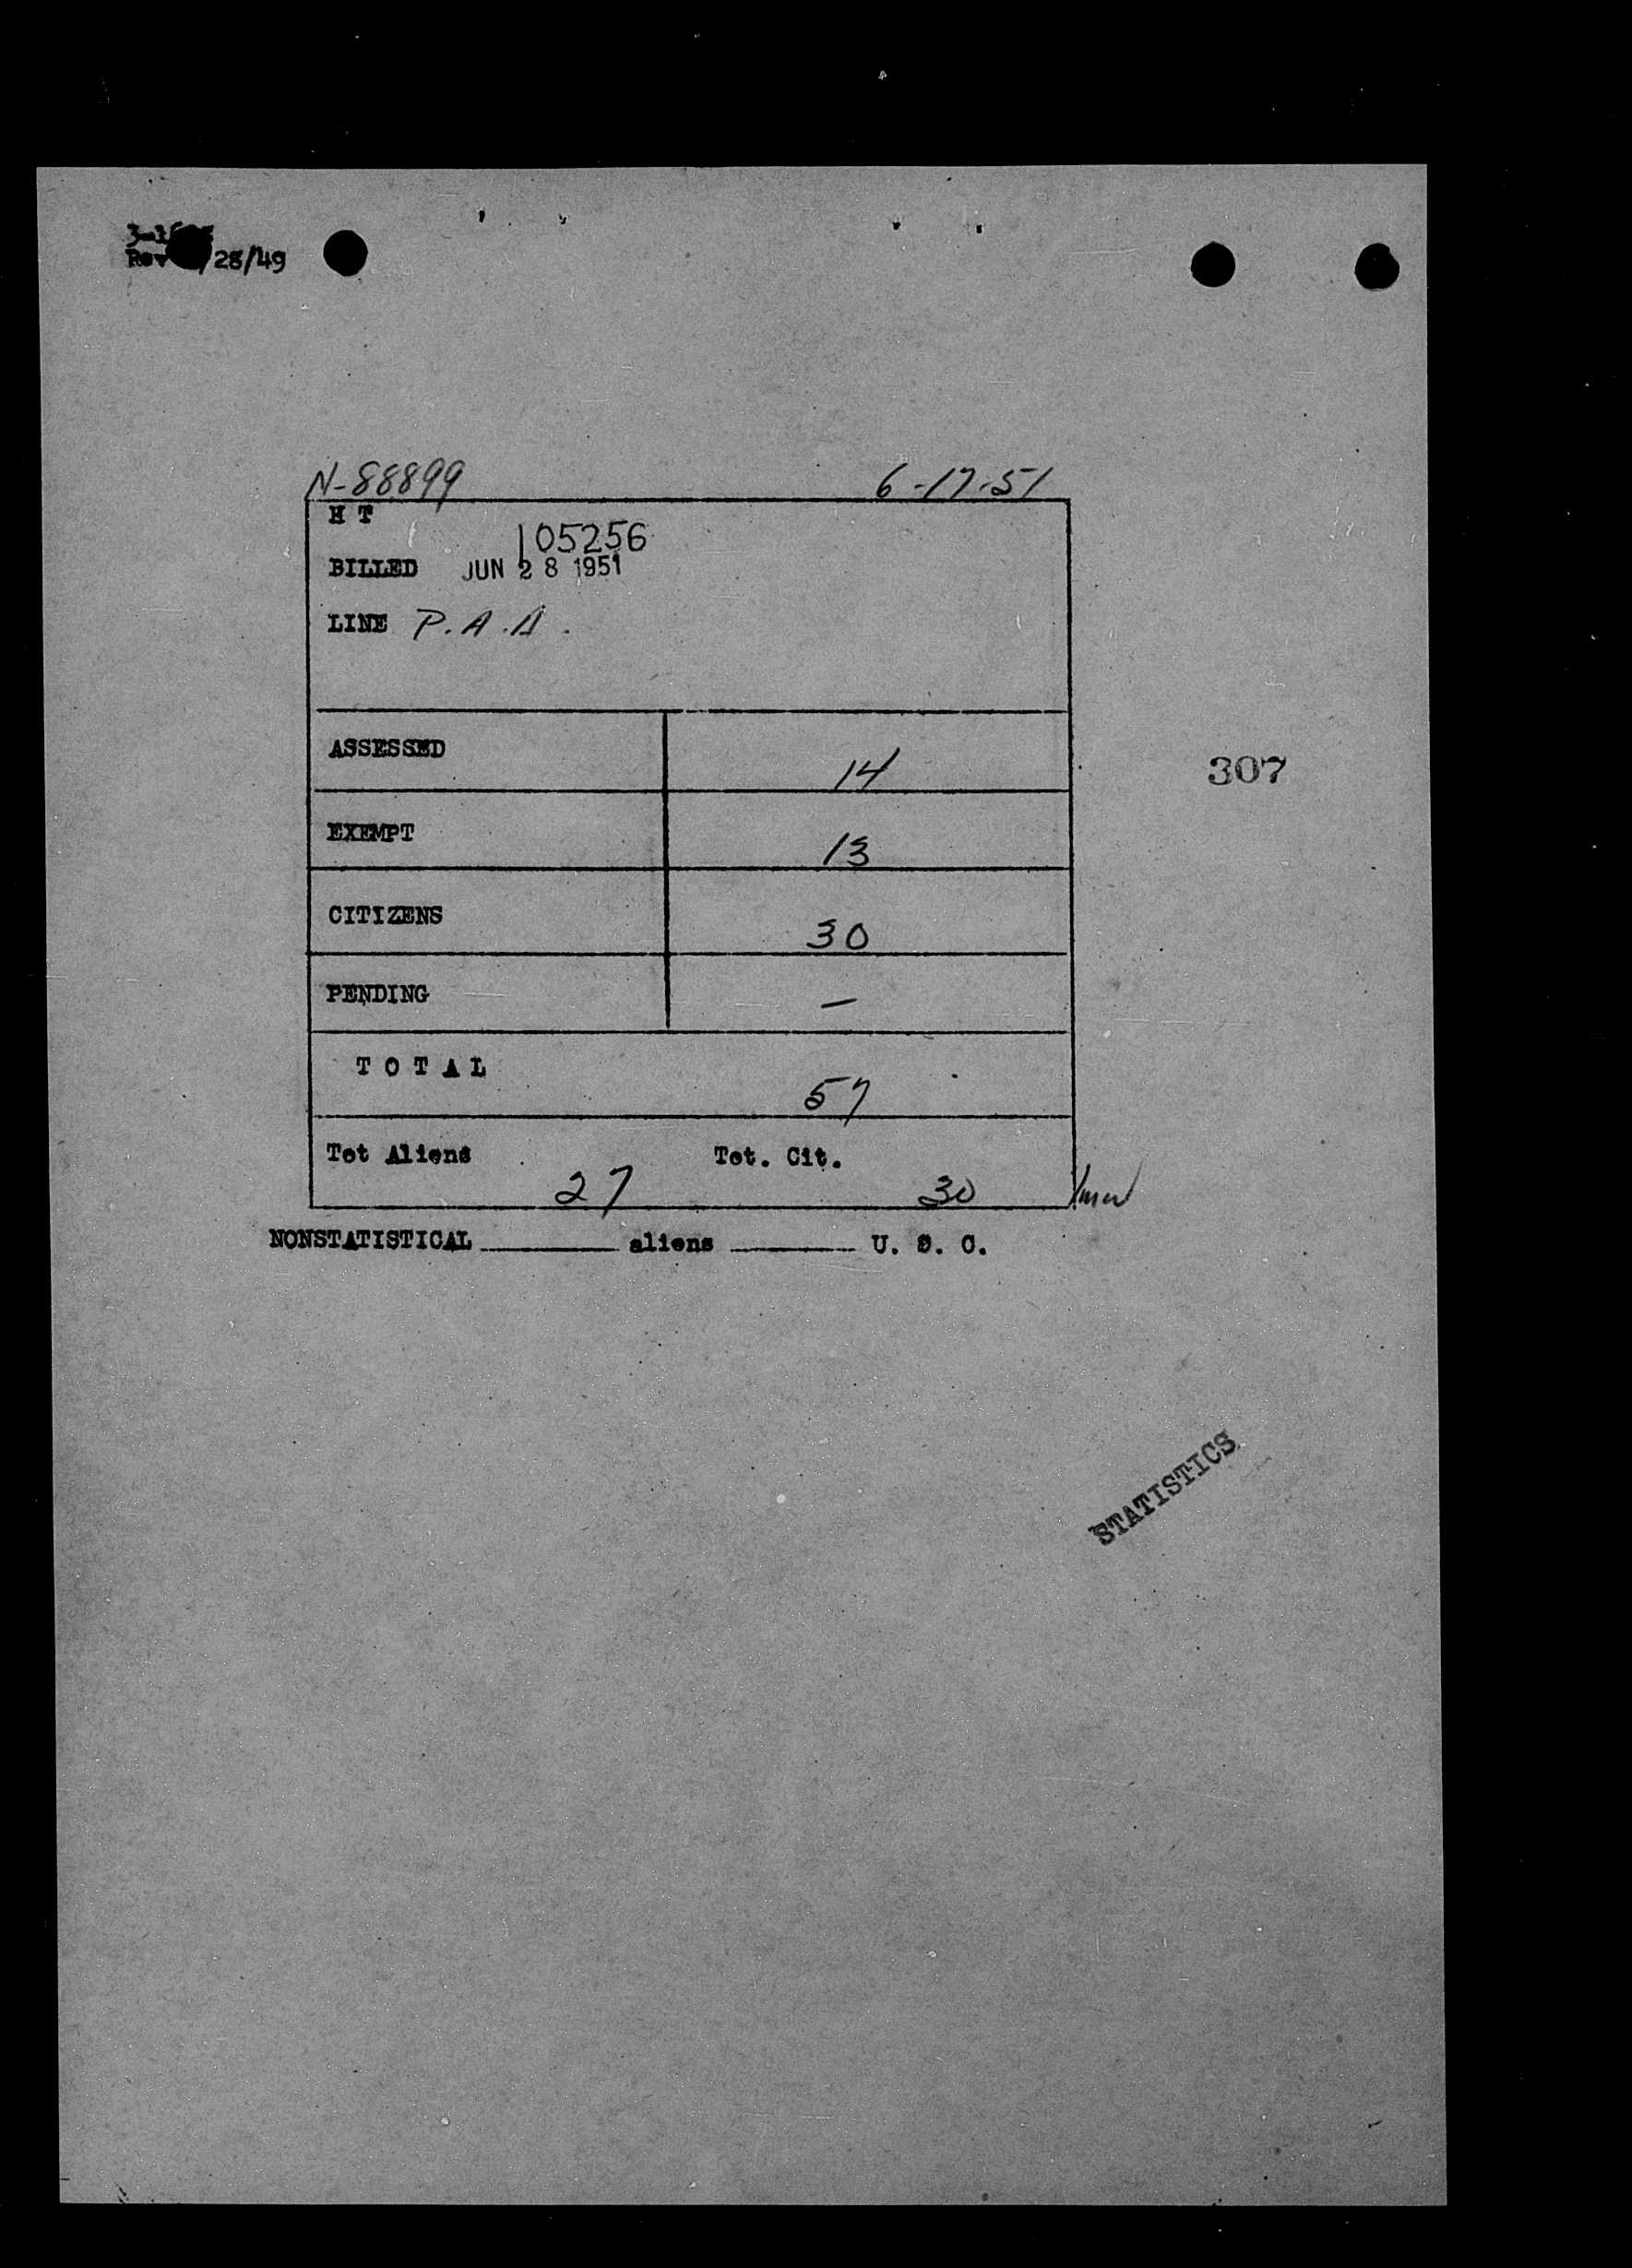 Rev /28/49
N-88899 6-17-51
H T
105256
BILLED JUN 28 1951
LINE P.A.A.
ASSESSED 14
307
EXEMPT 13
CITIZENS 30
PENDING —
TOTAL 57
Tot Aliens Tot. Cit.
27 30
NONSTATISTICAL ________ aliens ________ U. S. C.
STATISTICS